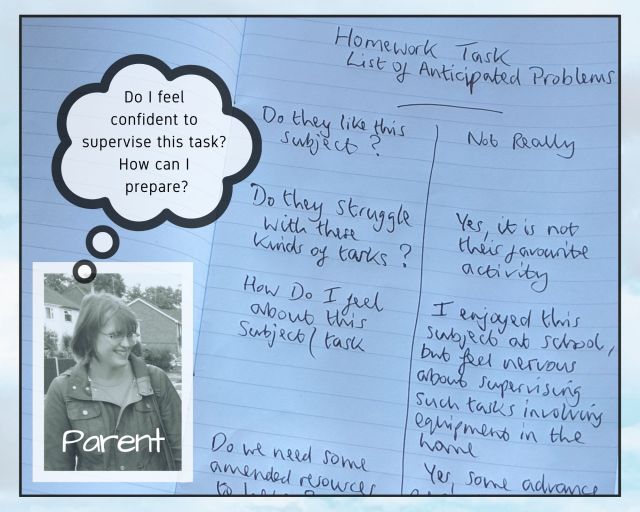 Do I feel
confident to
supervise this task?
How can I
prepare?
Parent
Homework Task
List of Anticipated Problems
Do they like this
subject?
Not Really
Do they struggle
with these
kinds of tasks?
Yes, it is not
their favourite
activity
How Do I feel
about this
Subject/task
I enjoyed this
subject at school,
but feel nervous
about supervising
such tasks involving
equipment in the
home
Do we need some
amended resources
Yes, some advance